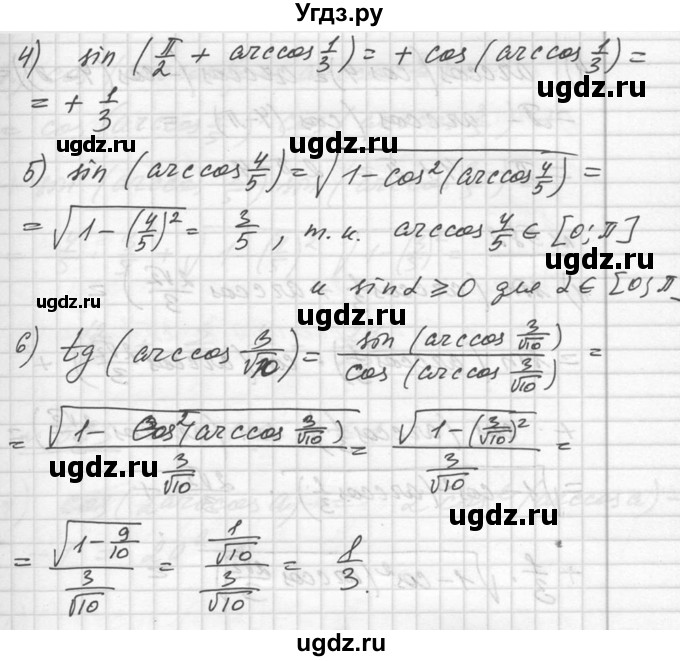 Угдз.ру
4) sin (π/2 + arccos 1/3) = + cos (arccos 1/3) =
= + 1/3
ugdz.ru ugdz.ru ugdz.ru
5) sin (arccos 4/5) = √(1 - cos²(arccos 4/5)) =
= √(1 - (4/5)²) = 3/5 , т.к. arccos 4/5 ∈ [0; π]
ugdz.ru ugdz.ru
и sin α ≥ 0 для α ∈ [0; π
ugdz.ru
6) tg (arccos 3/√10) = sin (arccos 3/√10) / cos (arccos 3/√10) =
ugdz.ru
= √(1 - cos²(arccos 3/√10)) / (3/√10) = √(1 - (3/√10)²) / (3/√10) =
ugdz.ru ugdz.ru
ugdz.ru
= √(1 - 9/10) / (3/√10) = (1/√10) / (3/√10) = 1/3.
ugdz.ru ugdz.ru
ugdz.ru